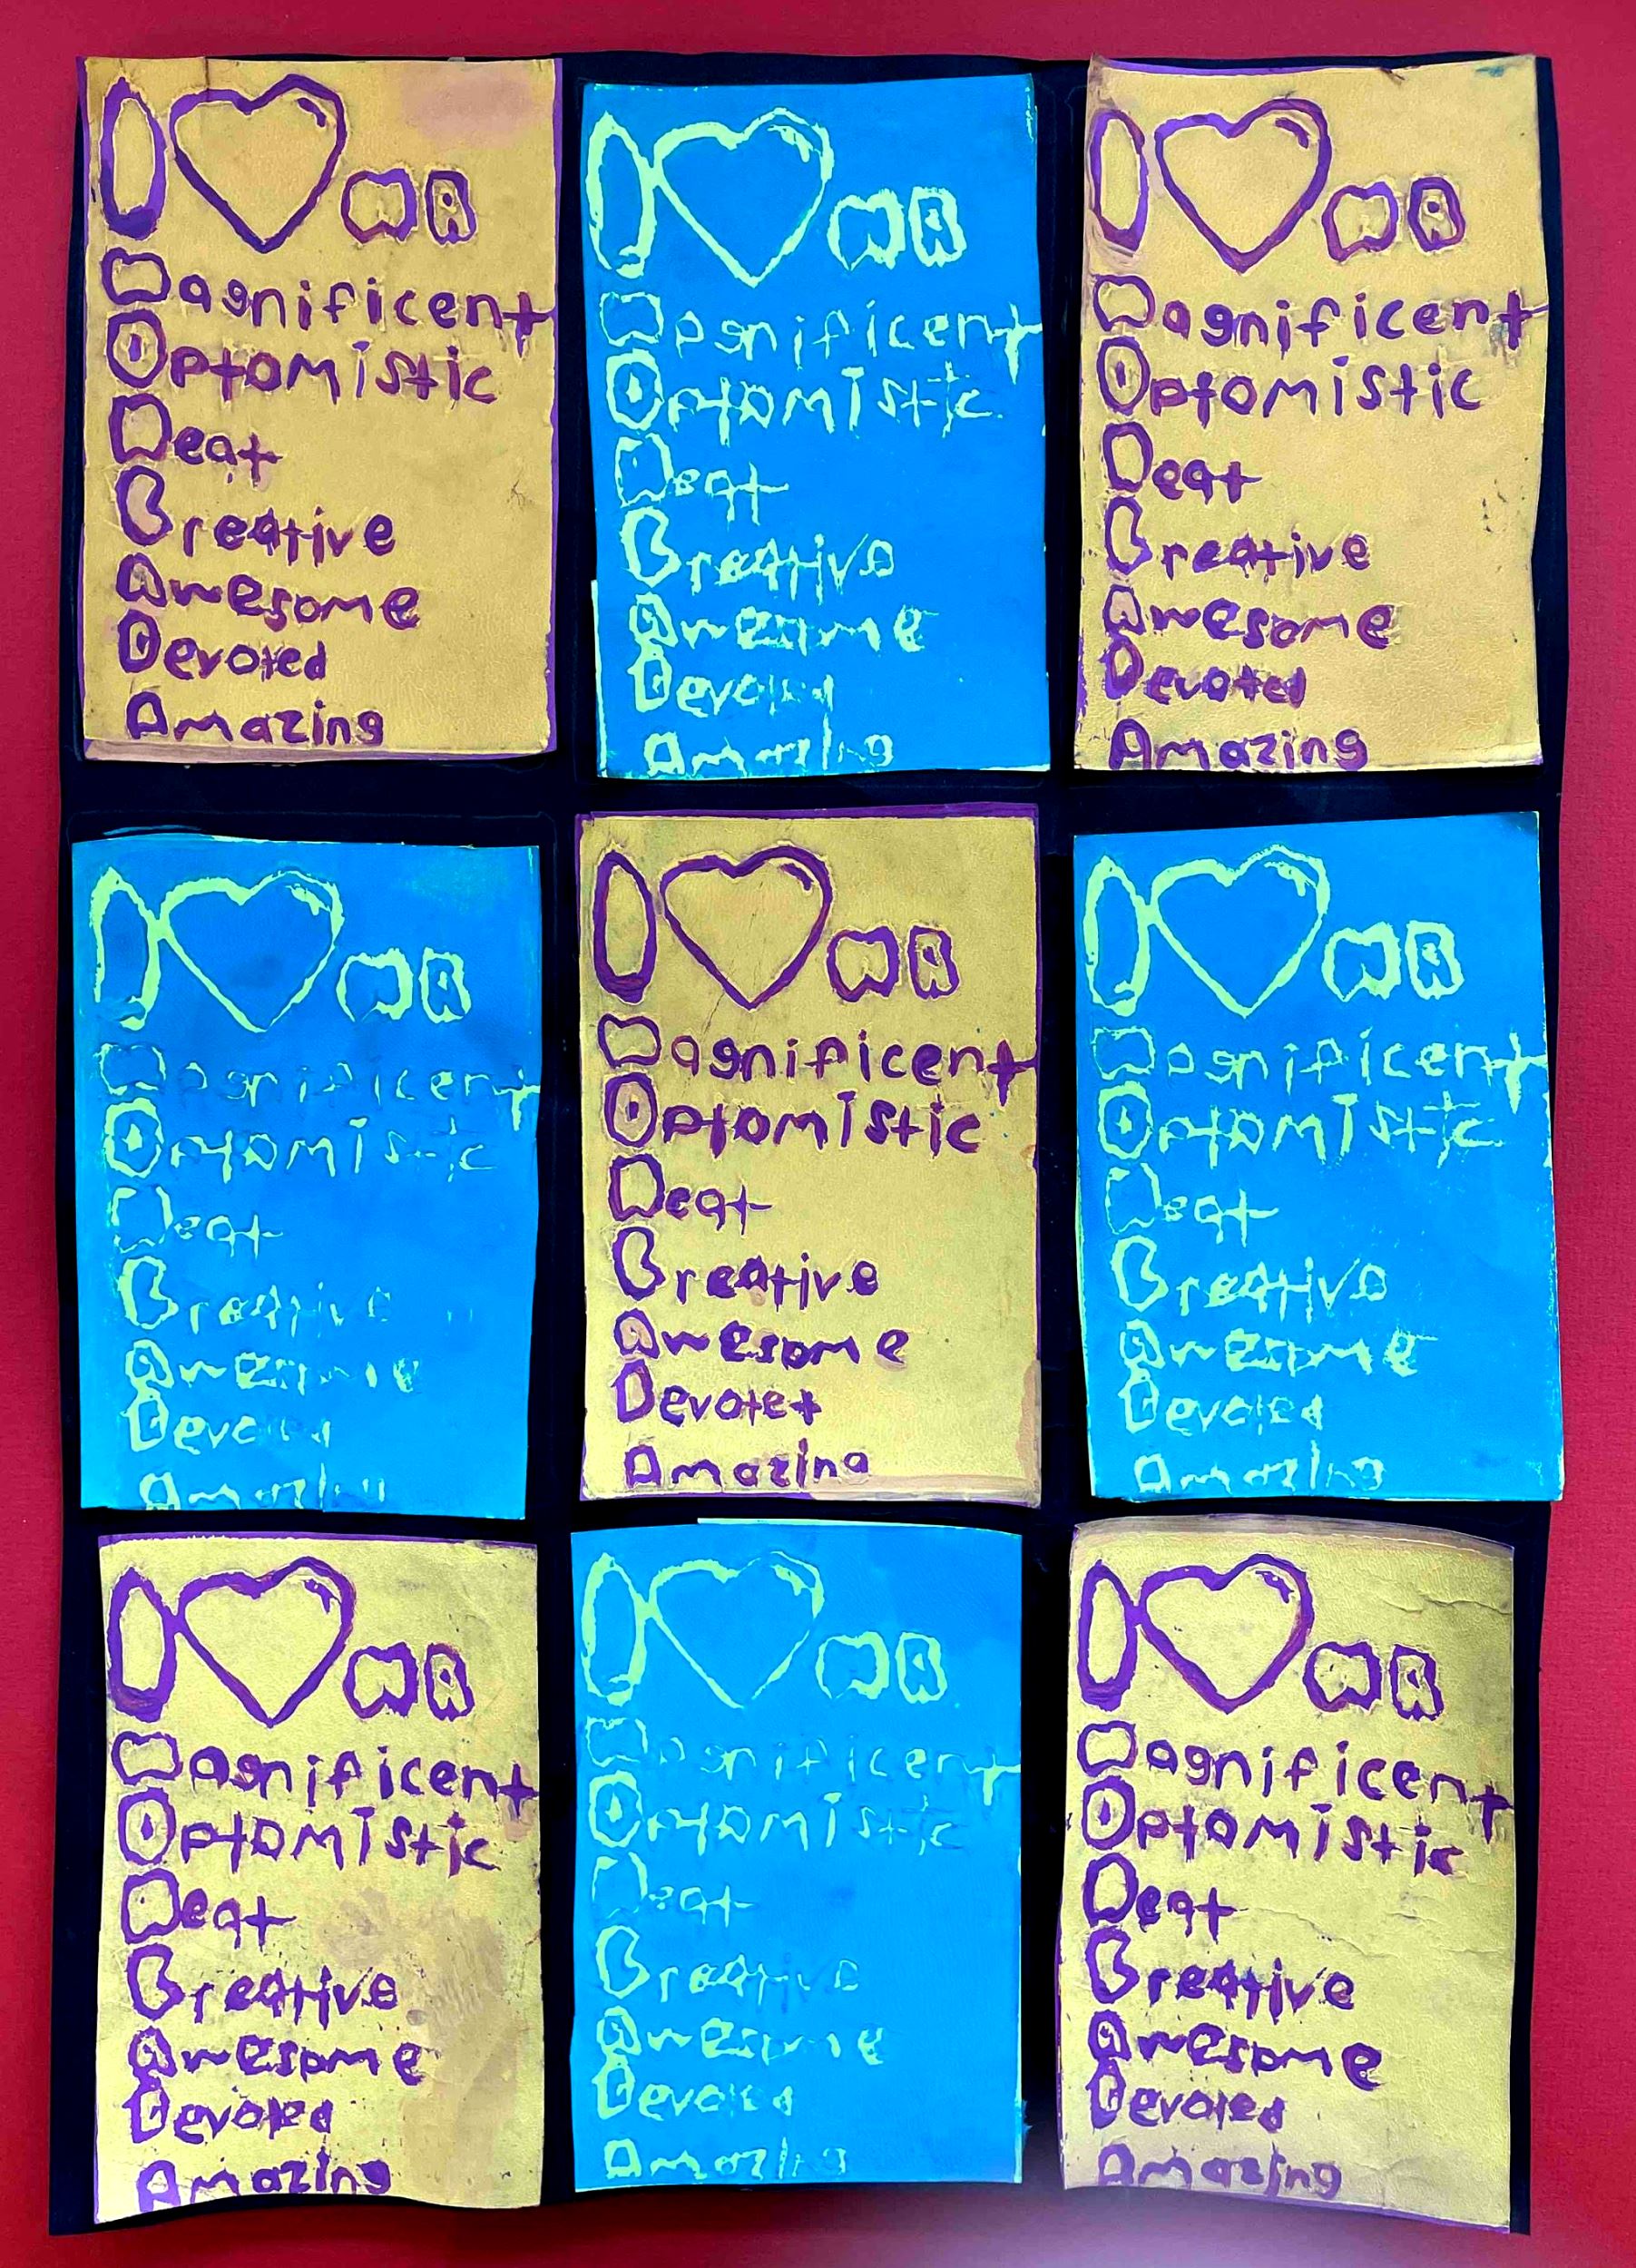 I ♡ MR
Magnificent
Optomistic
Neat
Creative
Awesome
Devoted
Amazing
I ♡ MR
Magnificent
Optomistic
Neat
Creative
Awesome
Devoted
Amazing
I ♡ MR
Magnificent
Optomistic
Neat
Creative
Awesome
Devoted
Amazing
I ♡ MR
Magnificent
Optomistic
Neat
Creative
Awesome
Devoted
Amazing
I ♡ MR
Magnificent
Optomistic
Neat
Creative
Awesome
Devotet
Amazing
I ♡ MR
Magnificent
Optomistic
Neat
Creative
Awesome
Devoted
Amazing
I ♡ MR
Magnificent
Optomistic
Neat
Creative
Awesome
Devoted
Amazing
I ♡ MR
Magnificent
Optomistic
Neat
Creative
Awesome
Devoted
Amazing
I ♡ MR
Magnificent
Optomistic
Neat
Creative
Awesome
Devoted
Amazing